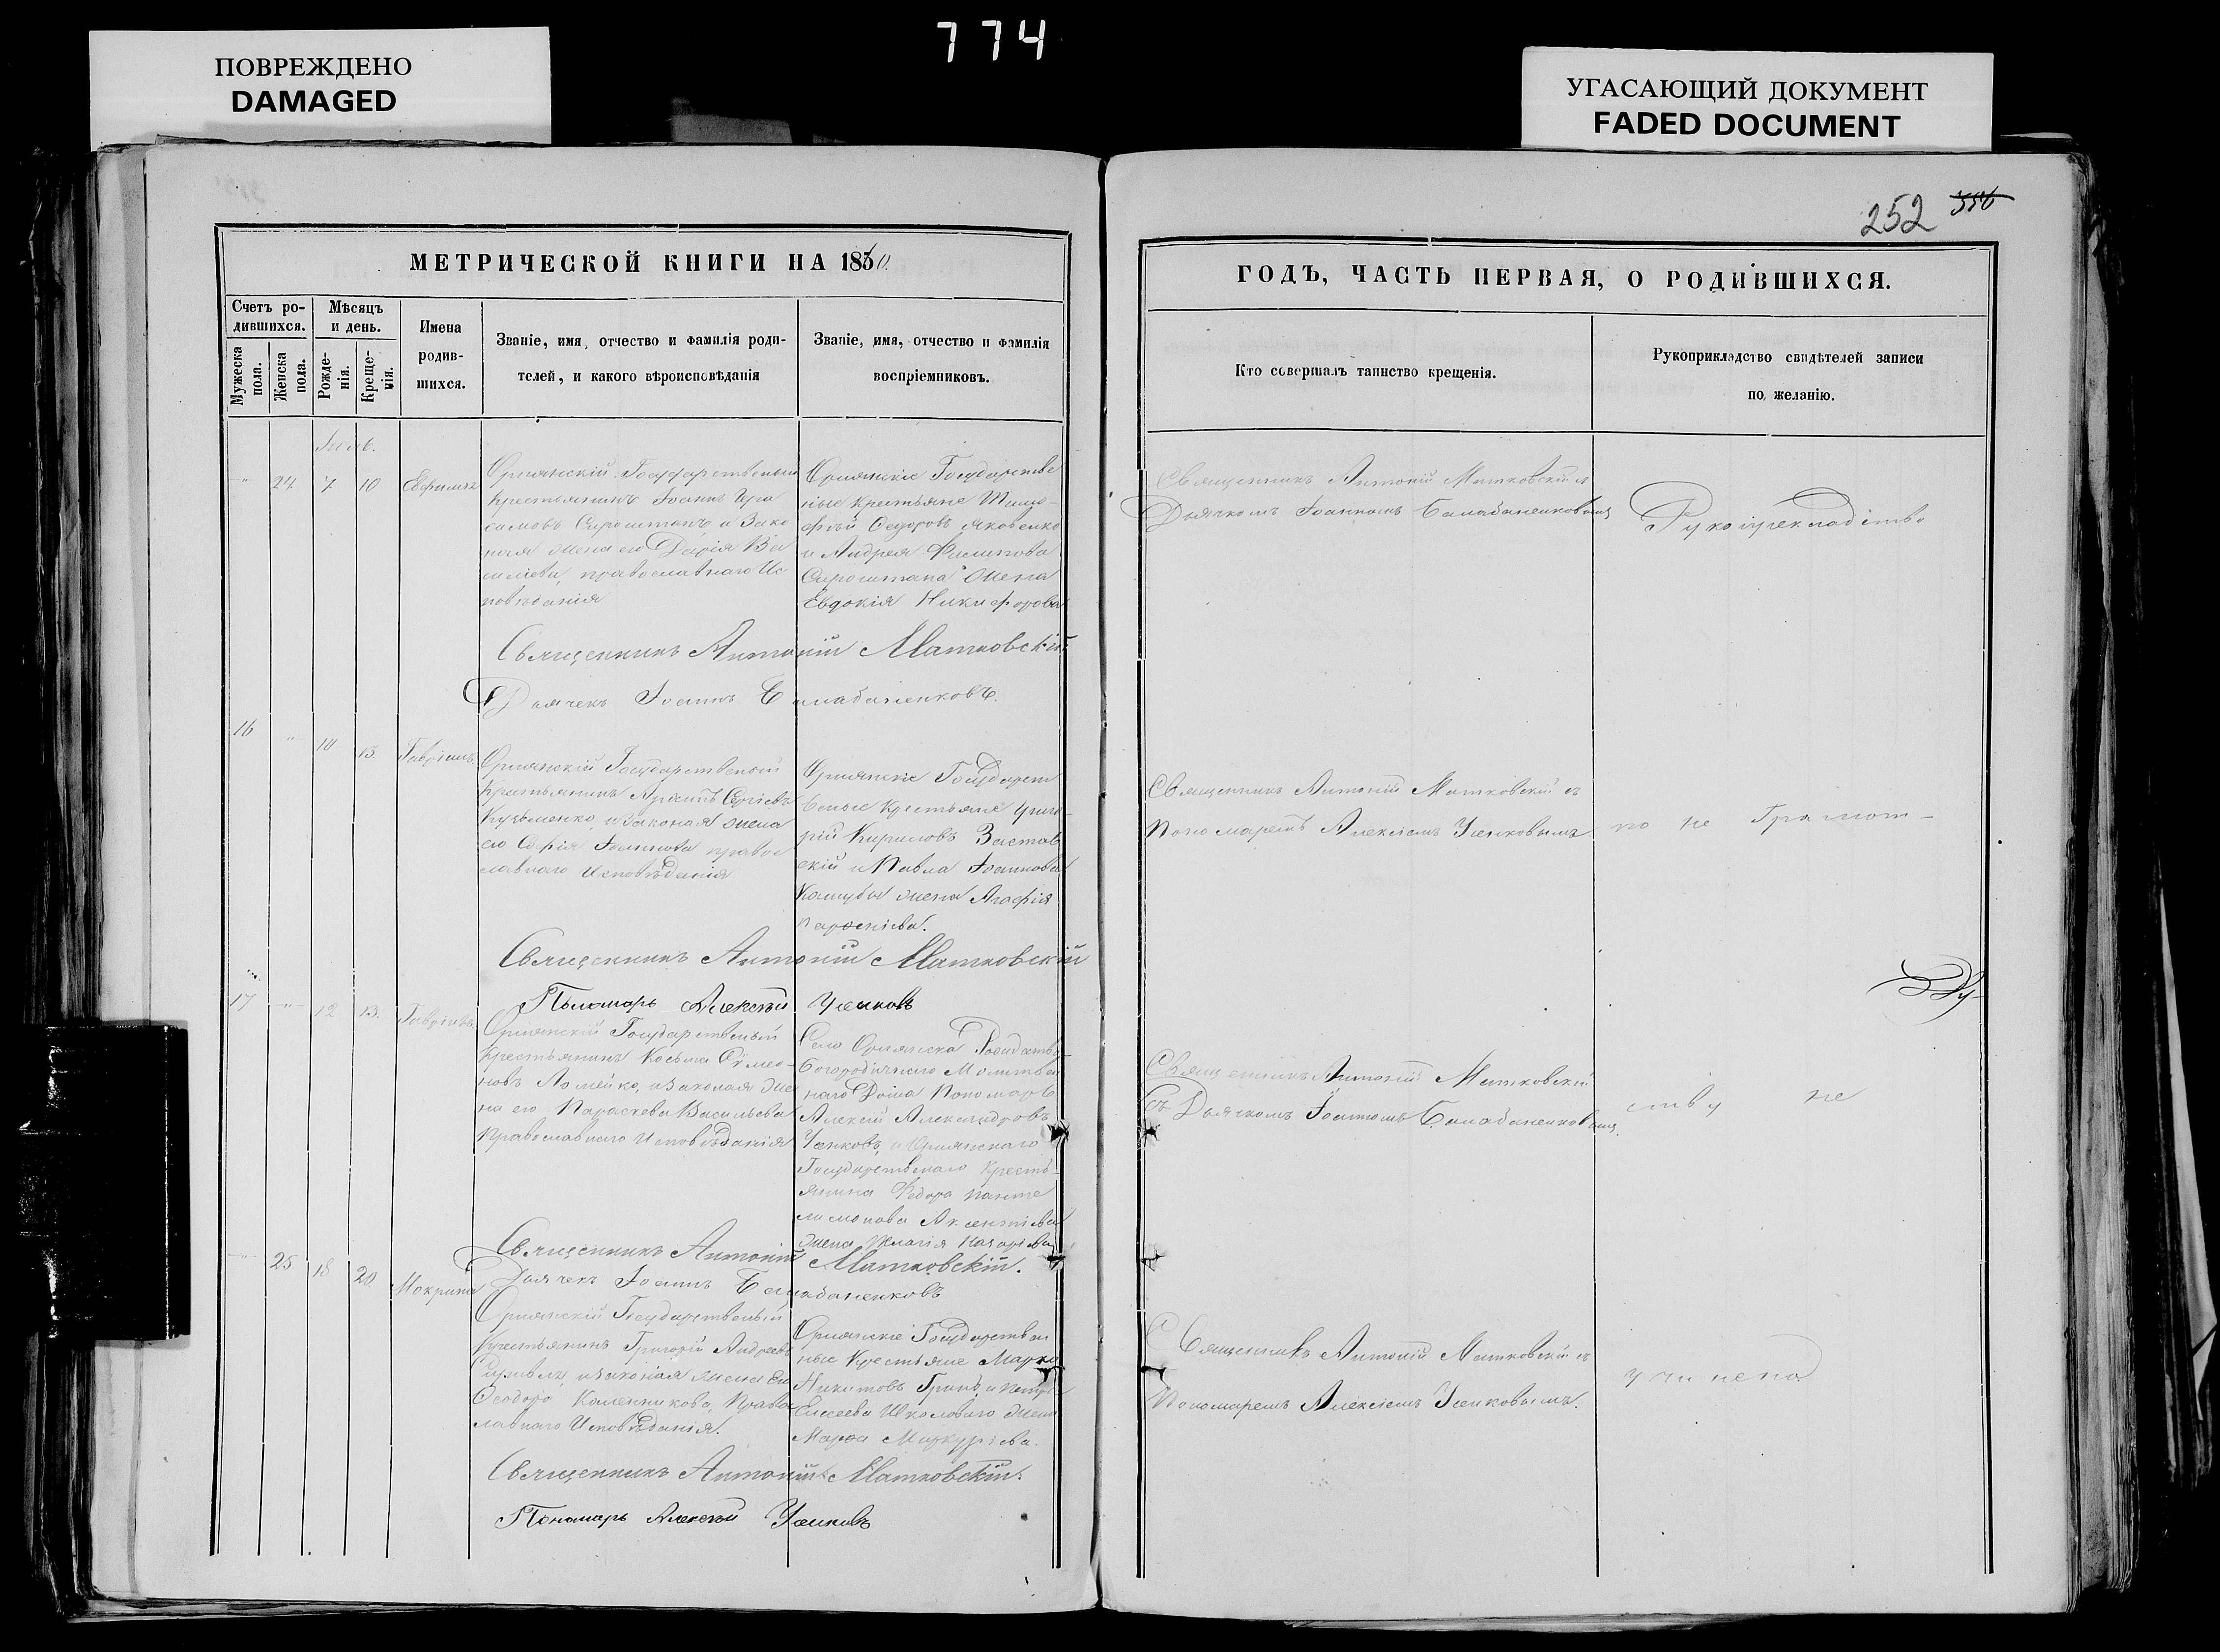 774
ПОВРЕЖДЕНО
DAMAGED
УГАСАЮЩИЙ ДОКУМЕНТ
FADED DOCUMENT
252 356
МЕТРИЧЕСКОЙ КНИГИ НА 1860.
Счетъ ро-
дившихся.
Мужеска
пола.
Женска
пола.
Мѣсяцъ
и день.
Рожде-
нія.
Креще-
нія.
Имена
родив-
шихся.
Званіе, имя, отчество и фамилія роди-
телей, и какого вѣроисповѣданія
Званіе, имя, отчество и фамилія
воспріемниковъ.
24 7 10
Орлянскій Государственый
крестьянинъ Іоаннъ
и Зако
ная жена его Дарія Ва
силіева, православнаго Ис
повѣданія
Орлянскіе Государстве
ные крестьяне Тимо-
фѣй Ѳедоровъ Яковенко
и Андрея Филипова
жена
Евдокія Никифорова
Священникъ Антоній Матковскій
Дьячекъ Іоаннъ Балабаненковъ.
16 " 10 13. Гавріилъ
Орлянскій Государственый
Крестьянинъ Сергіевъ
Кузьменко, и Законая жена
его Софія Іоаннова право
славнаго Исповѣданія
Орлянскіе Государст
веные Крестьяне Григо-
рій Кириловъ Застав
скій и Павла Іоаннова
жена Агафія
Священникъ Антоній Матковскій
Пономарь Алексѣй Усенковъ
17 " 12 13. Гавріилъ
Орлянскій Государственый
Крестьянинъ Косьма Сѵмео-
новъ Ломейко, и Законая же
на его Параскева Васильева
Православнаго Исповѣданія
Села Орлянска Рождество-
Богородичнаго Молитвен
наго Дома Пономарь
Алексѣй Александровъ
Усенковъ, и Орлянскаго
Государственаго Кресть-
янина Ѳедора Панте
лимонова
жена Пелагія Назаріева
Священникъ Антоній Матковскій.
Дьячекъ Іоаннъ Балабаненковъ
25 18 20 Мокрина
Орлянскій Государственый
Крестьянинъ Григорій Андреевъ
и законая жена его
Ѳеодора Право
славнаго Исповѣданія.
Орлянскіе Государствен
ные Крестьяне Марко
Никитовъ и Петра
Елисеева жена
Марѳа Меркуріева.
Священникъ Антоній Матковскій.
Пономарь Алексѣй Усенковъ
ГОДЪ, ЧАСТЬ ПЕРВАЯ, О РОДИВШИХСЯ.
Кто совершалъ таинство крещенія.
Рукоприкладство свидѣтелей записи
по желанію.
Священникъ Антоній Матковскій съ
Дьячкомъ Іоанномъ Балабаненковымъ
Священникъ Антоній Матковскій съ
Пономаремъ Алексіемъ Усенковымъ
по не Грамот-
Священникъ Антоній Матковскій
съ Дьячкомъ Іоанномъ Балабаненковымъ
ству не
Священникъ Антоній Матковскій съ
Пономаремъ Алексіемъ Усенковымъ.
учинено